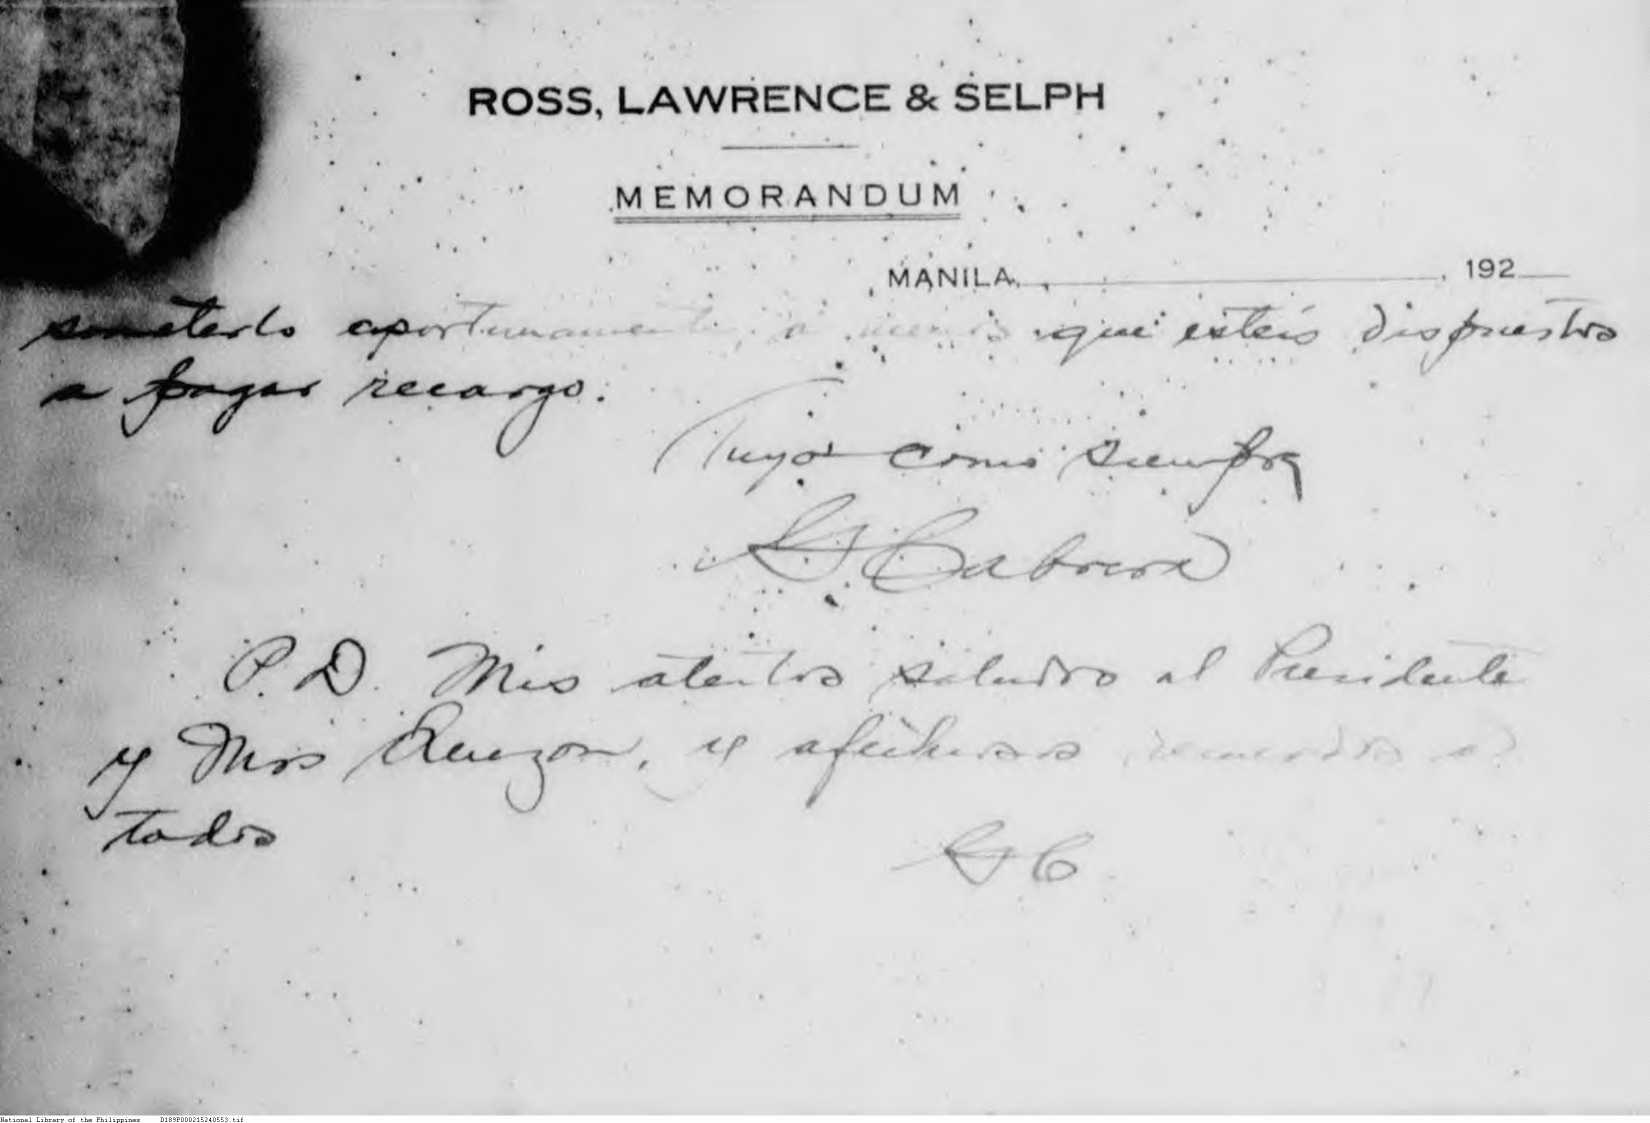 ROSS, LAWRENCE & SELPH
MEMORANDUM
MANILA, 192
someterlo oportunamente, a menos que esteis dispuestos
a pagar recargo.
Tuyo como siempre
Cabrera
P.D. Mis atentos saludos al Presidente
y Mrs Quezon, y afectuosos recuerdos a
todos
National Library of the Philippines D189P000215240553.tif